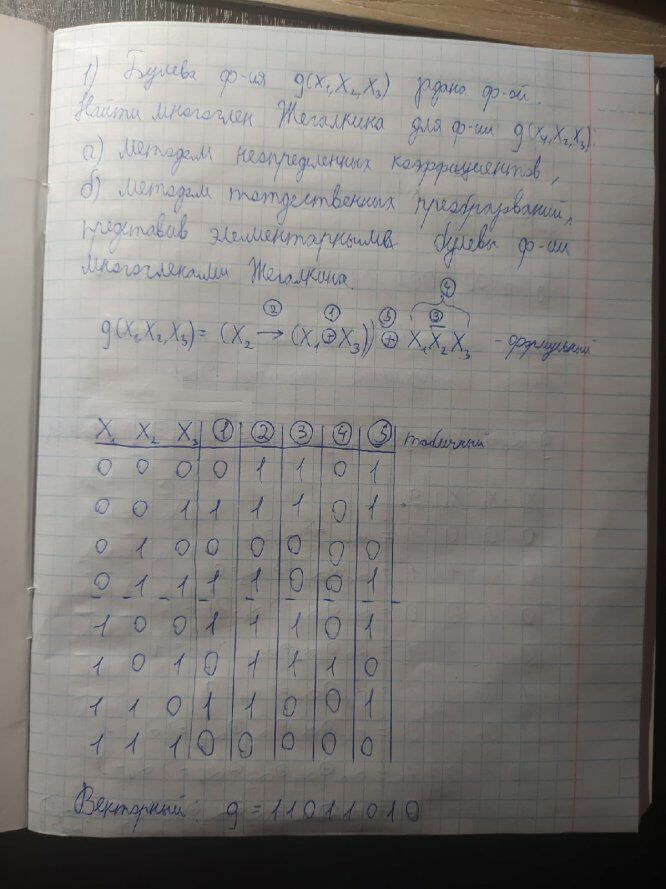 1) Булева ф-ия g(X₁,X₂,X₃) задана ф-ой.
Найти многочлен Жегалкина для ф-ии g(X₁,X₂,X₃):
а) методом неопределенных коэффициентов,
б) методом тотдественных преобразований,
представив элементарными булевы ф-ии
многочленами Жегалкина.
④
② ① ⑤ ③
g(X₁X₂,X₃) = (X₂ → (X₁⊕X₃)) ⊕ X₁X̅₂X₃ - формульный
X₁ X₂ X₃ ① ② ③ ④ ⑤ табличный
0 0 0 0 1 1 0 1
0 0 1 1 1 1 0 1
0 1 0 0 0 0 0 0
0 1 1 1 1 0 0 1
1 0 0 1 1 1 0 1
1 0 1 0 1 1 1 0
1 1 0 1 1 0 0 1
1 1 1 0 0 0 0 0
Векторный: g = 11011010